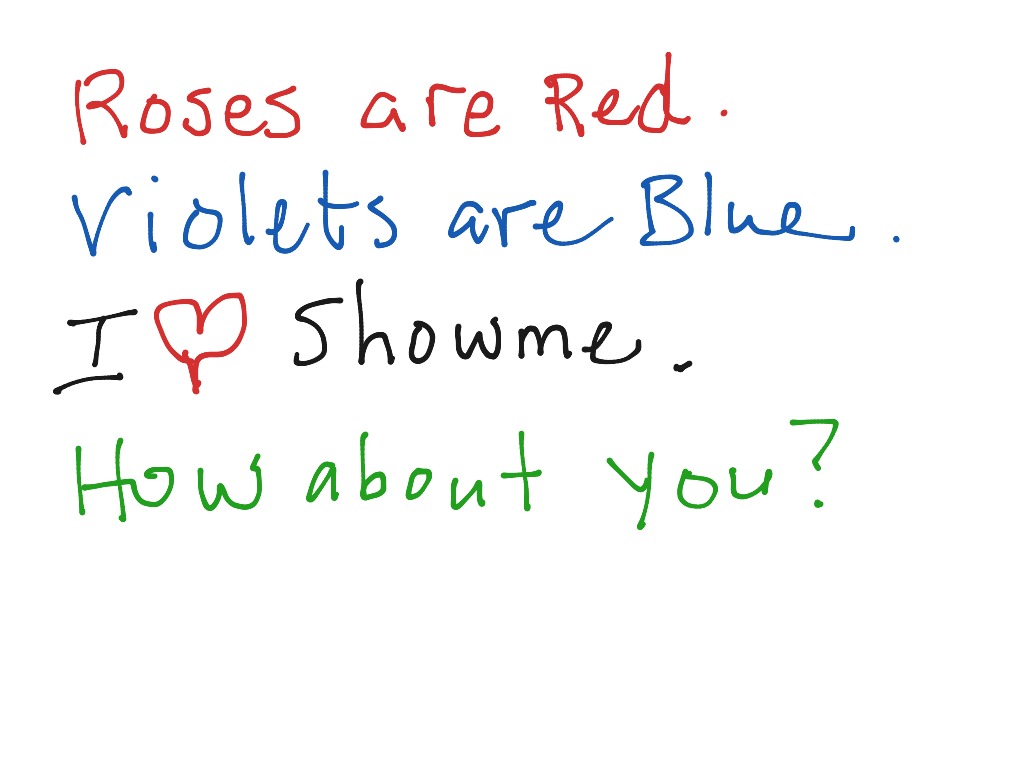 Roses are Red.
Violets are Blue.
I ♥ Showme.
How about you?